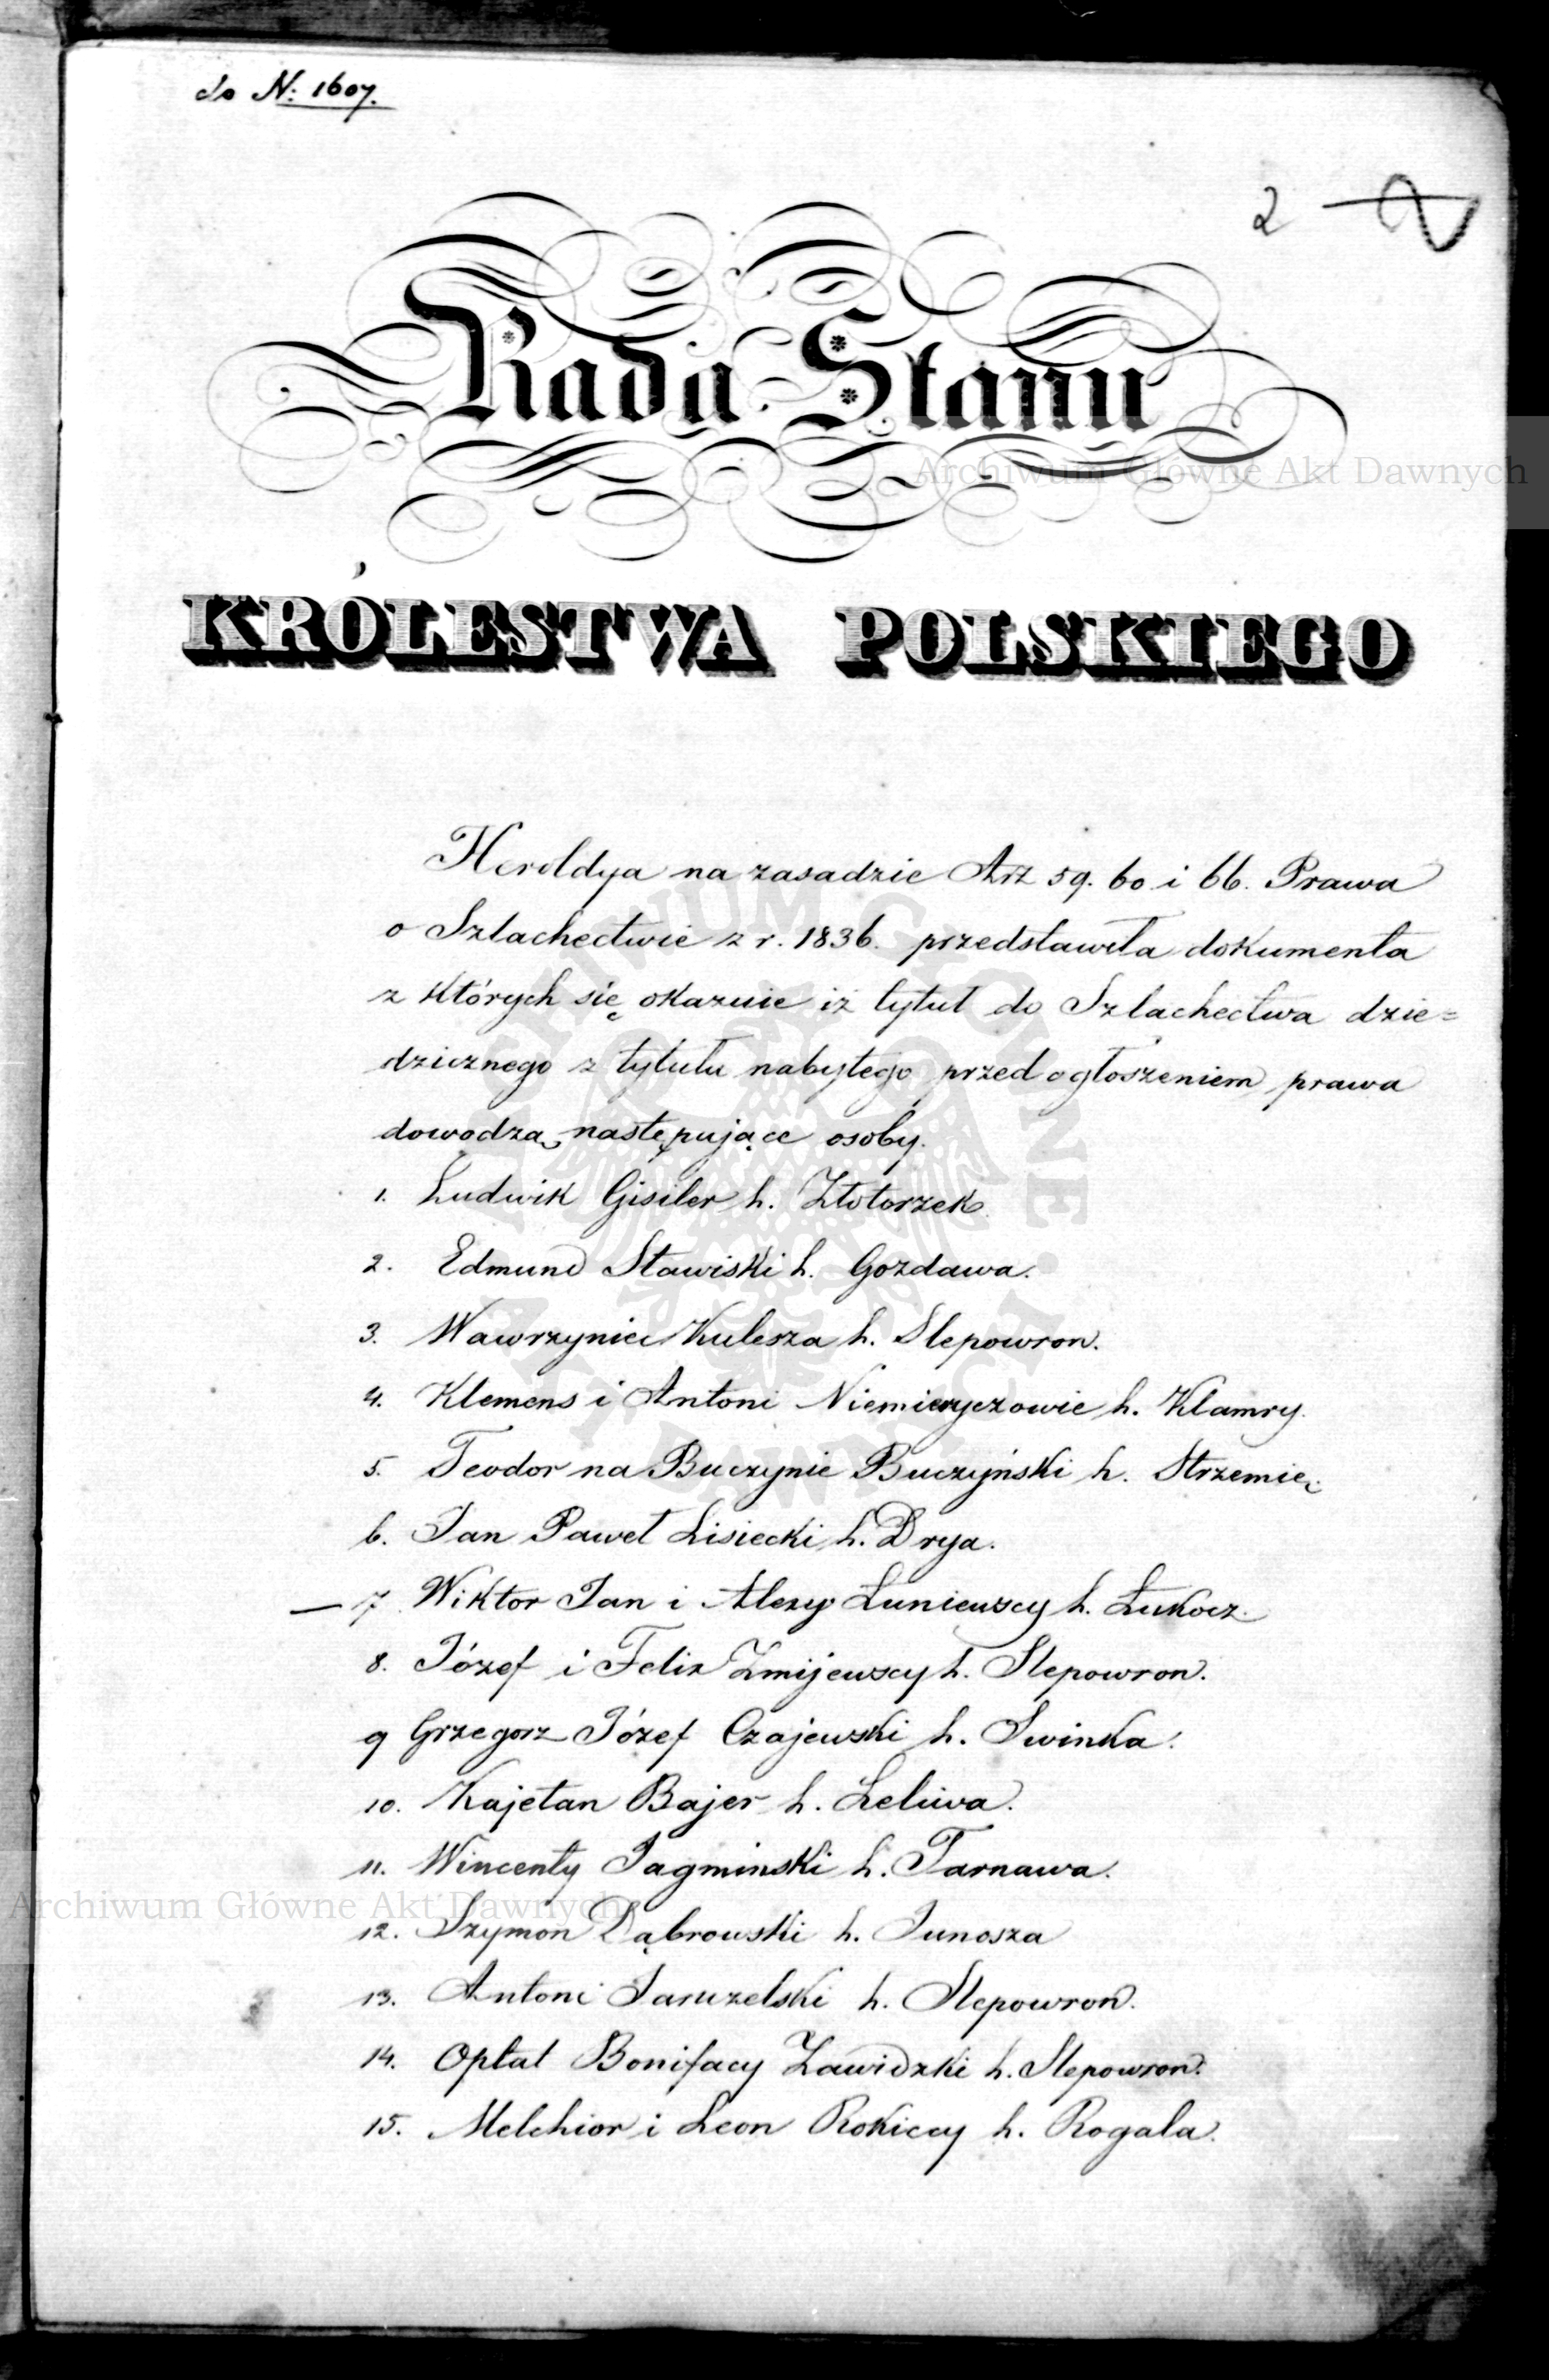 do N: 1607.
2
Rada Stanu
Archiwum Główne Akt Dawnych
KRÓLESTWA POLSKIEGO
Heroldya na zasadzie Art 59. 60 i 66. Prawa
o Szlachectwie z r. 1836. przedstawiła dokumenta
z których się okazuie iż tytuł do Szlachectwa dzie=
dzicznego z tytułu nabytego przed ogłoszeniem prawa
dowodzą następujące osoby.
1. Ludwik Gisiler h. Złotorzek
2. Edmund Stawiski h. Gozdawa.
3. Wawrzyniec Kulesza h. Slepowron.
4. Klemens i Antoni Niemieryczowie h. Klamry.
5. Teodor na Buczynie Buczyński h. Strzemię.
6. Jan Paweł Lisiecki h. Drya.
— 7. Wiktor Jan i Alexy Łuniewscy h. Łukocz.
8. Józef i Felix Zmijewscy h. Slepowron.
9 Grzegorz Józef Czajewski h. Swinka.
10. Kajetan Bajer h. Leliwa.
11. Wincenty Jagminski h. Tarnawa.
Archiwum Główne Akt Dawnych
12. Szymon Dąbrowski h. Junosza
13. Antoni Jaruzelski h. Slepowron.
14. Optat Bonifacy Zawidzki h. Slepowron.
15. Melchior i Leon Rokiccy h. Rogala.